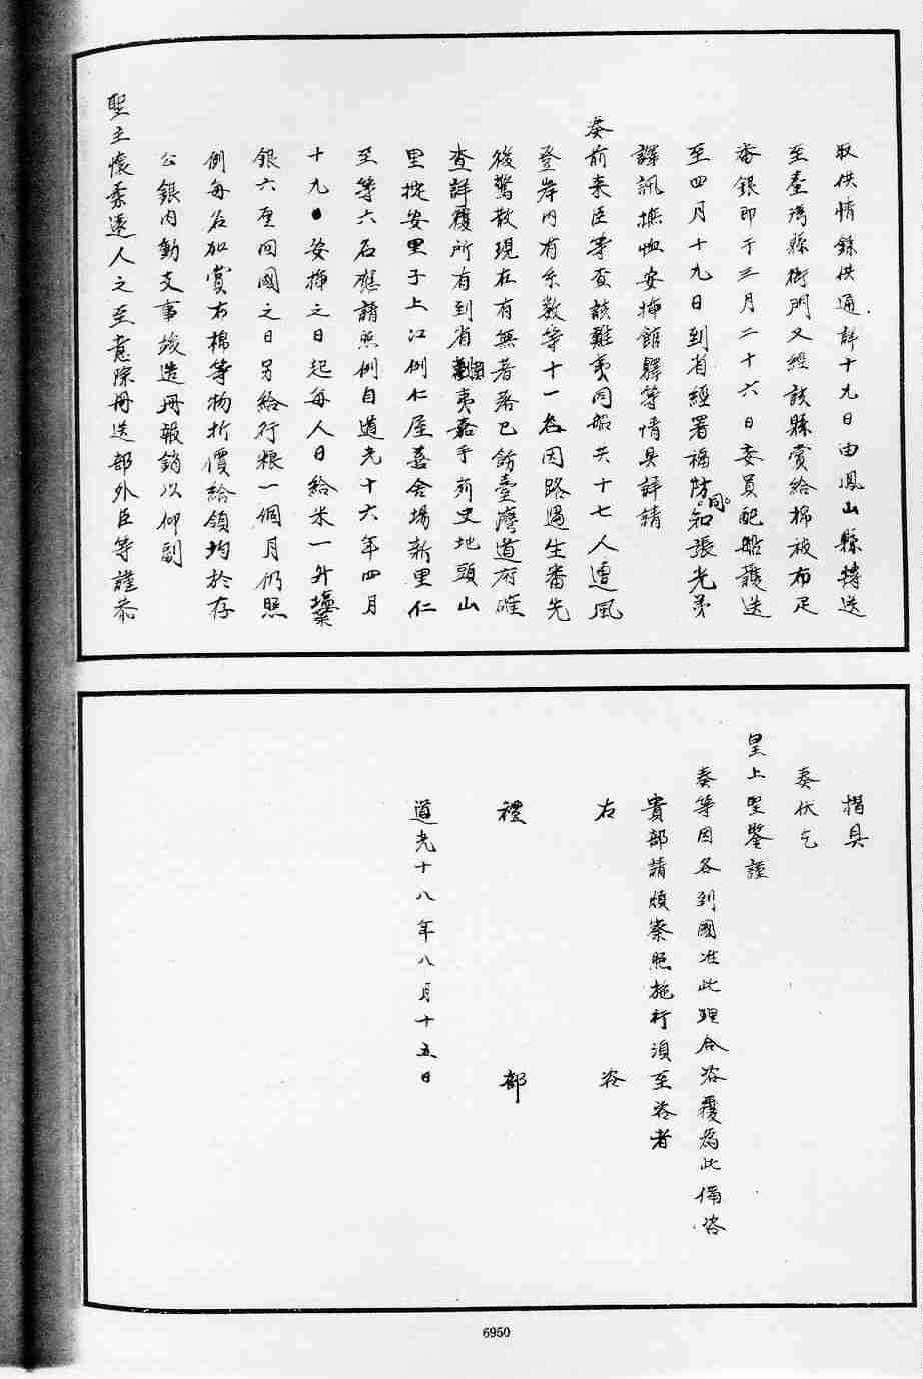 取供情錄供通詳十九日由鳳山縣轉送
至臺灣縣衙門又經該縣賞給棉被布疋
番銀即于三月二十六日委員配船護送
至四月十九日到省經署福防同知張光第
譯訊撫恤安揷館驛等情具詳請
奏前來臣等查該難夷同船共十七人遭風
登岸內有糸數等十一名因路遇生番先
後驚散現在有無著落已飭臺灣道府確
查詳覆所有到省難夷嘉手苅史地頭山
里掟安里子上江例仁屋喜舍場新里仁
至等六名應請照例自道光十六年四月
十九安揷之日起每人日給米一升塩菜
銀六至回國之日另給行粮一個月仍照
例每名加賞布棉等物折價給領均於存
公銀內動支事竣造冊報銷以仰副
聖主懷柔遠人之至意除冊送部外臣等謹恭
摺具
奏伏乞
皇上聖鑒謹
奏等因各到國准此理合咨覆為此備咨
貴部請煩察照施行須至咨者
右 咨
禮 部
道光十八年八月十五日
6950